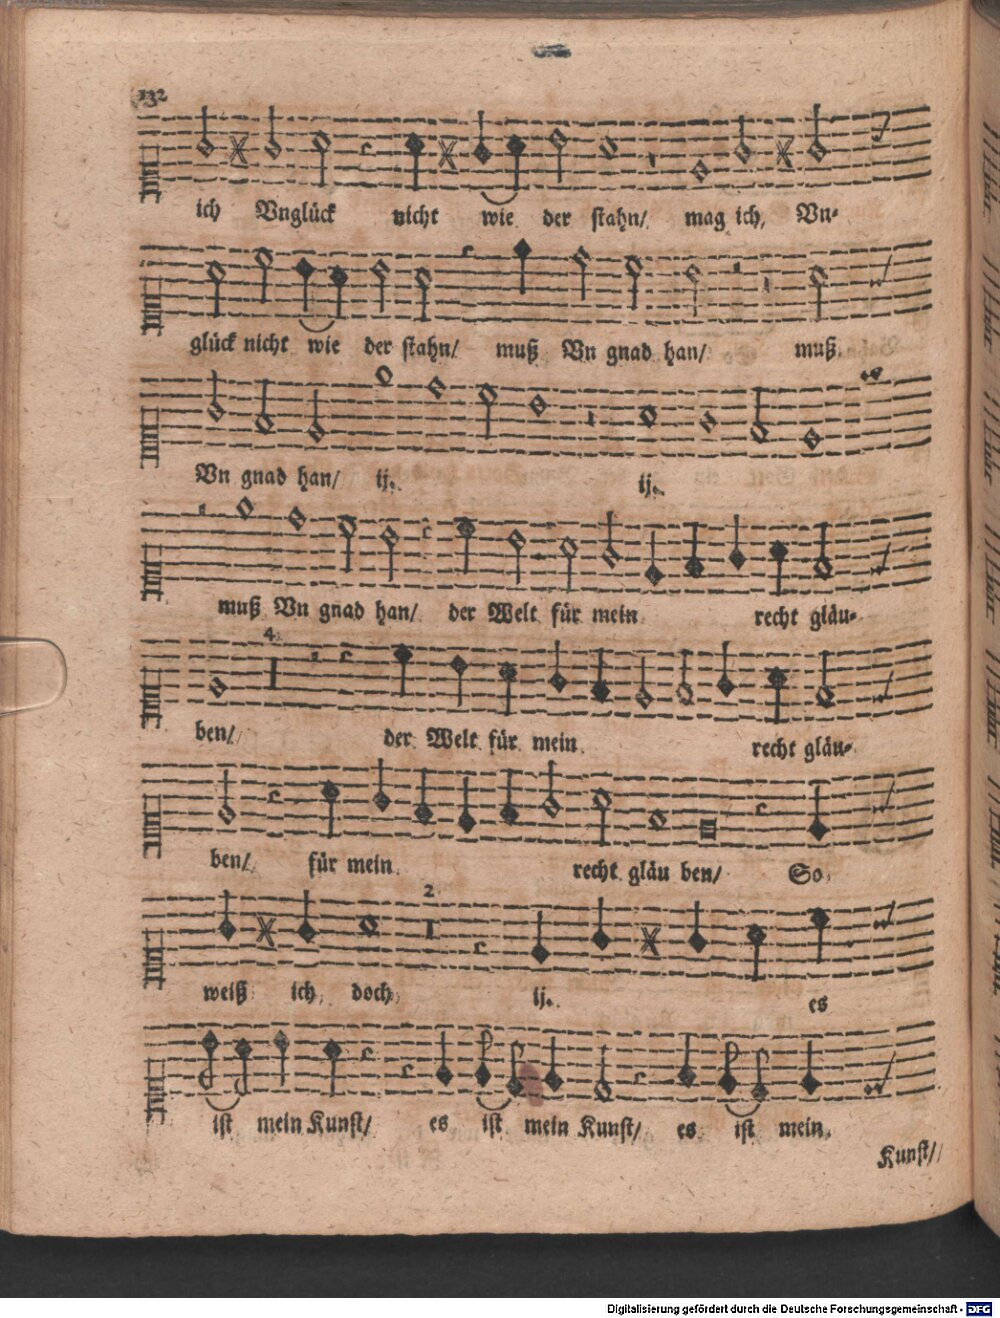 132
ich Vnglück nicht wie der stahn/ mag ich, Vn-
glück nicht wie der stahn/ muß Vn gnad han/ muß
Vn gnad han/ ij. ij.
muß Vn gnad han/ der Welt für mein recht gläu-
4.
ben/ der Welt für mein recht gläu-
ben/ für mein recht gläu ben/ So
2
weiß ich doch ij. es
ist mein Kunst/ es ist mein Kunst/ es ist mein
Kunst/
Digitalisierung gefördert durch die Deutsche Forschungsgemeinschaft - DFG